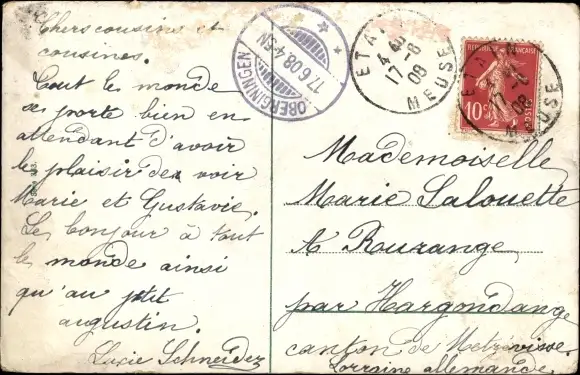 Chers cousins et
cousines.
Tout le monde
se porte bien en
attendant d'avoir
le plaisir de voir
Marie et Gustavie.
Le bonjour à tout
le monde ainsi
qu'au ptit
augustin.
Lucie Schneider
OBERGININGEN
17.6.08.4-5N
ETA
17-6
08
MEUSE
REPUBLIQUE FRANÇAISE
10c
POSTES
ETA
17-6
08
MEUSE
Mademoiselle
Marie Lalouette
A Rurange
par Hargondange
canton de Metrevisse
Lorraine allemande